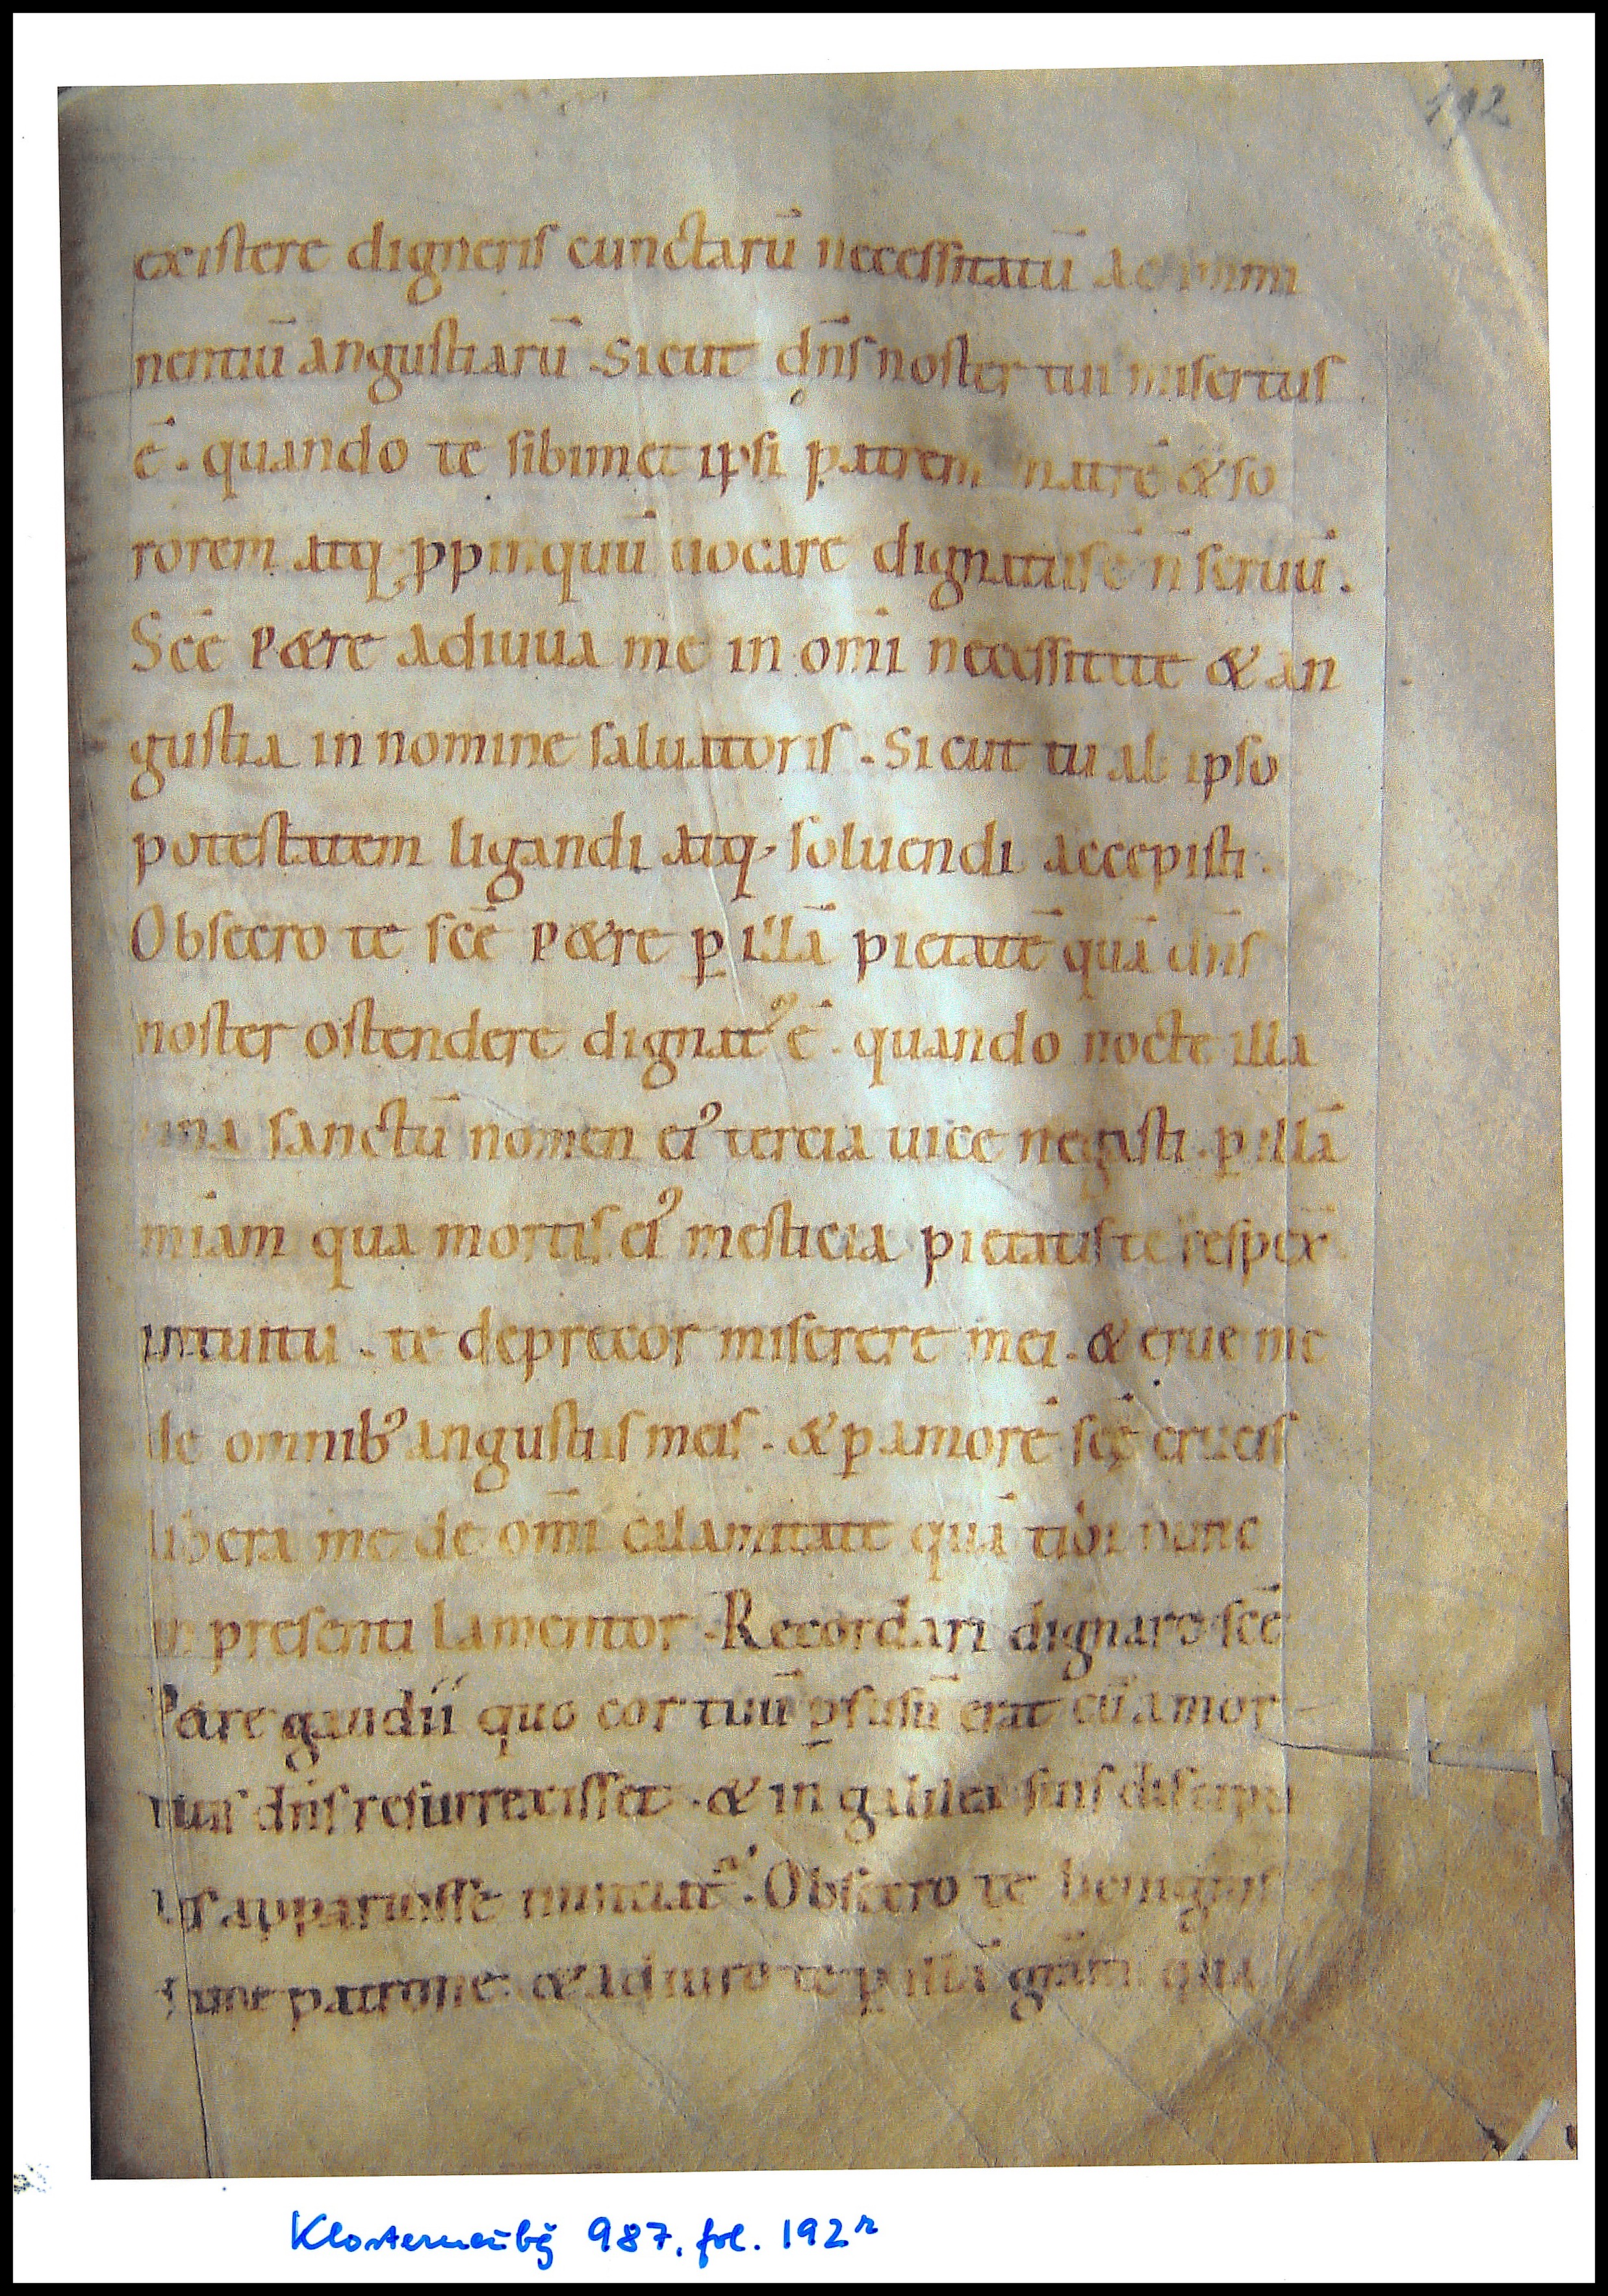 192
existere digneris cunctarū necessitatū ac immi
nentiū angustiarū. Sicut dn̄s noster tui misertus
ē. quando te sibimet ipsi patrem matrē & so
rorem atq; ꝓpinquū uocare dignatus ē n̄ seruū.
Sc̄e P&re adiuua me in om̄i necessitate & an
gustia in nomine saluatoris. Sicut tu ab ipso
potestatem ligandi atq; soluendi accepisti.
Obsecro te sc̄e P&re ꝑ illā pietatē quā dn̄s
noster ostendere dignatꝰ ē. quando nocte illa
una sanctū nomen eiꝰ tercia uice negasti. ꝑ illā
mīam qua mortis eiꝰ mesticia pietatis te respex̄
intuitu. te deprecor miserere mei. & erue me
de omnibꝰ angustiis meis. & ꝑ amorē sc̄ę crucis
libera me de om̄i calamitate quā tibi nunc
in presenti lamentor. Recordari dignare sc̄e
P&re gaudii quo cor tuū ꝑfusū erat cū a mor
tuis dn̄s resurrexisset. & in galilea suis discipu
lis apparuisse nunciatꝰ. Obsecro te benignis
sime patrone. & adiuro te ꝑ illā gr̄am qua
Klosterneubg 987, fol. 192r